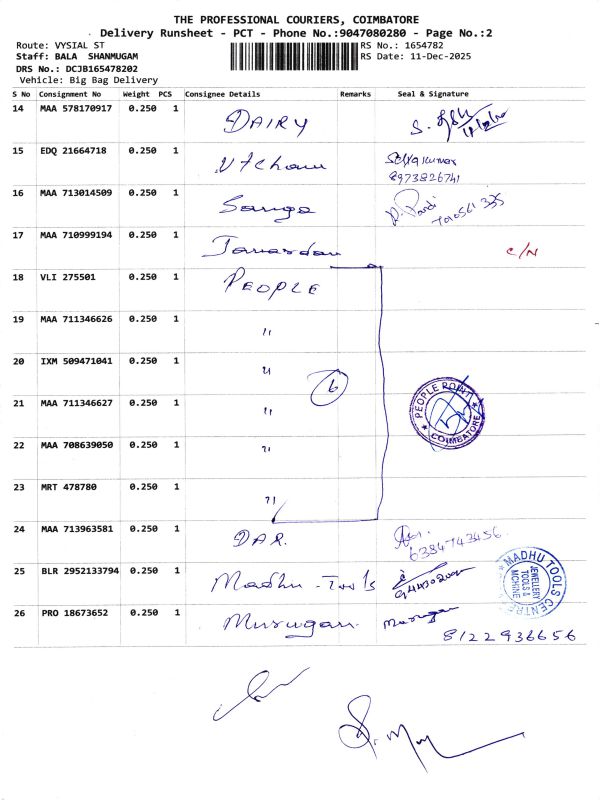 THE PROFESSIONAL COURIERS, COIMBATORE
Delivery Runsheet - PCT - Phone No.:9047080280 - Page No.:2
Route: VYSIAL ST RS No.: 1654782
Staff: BALA SHANMUGAM RS Date: 11-Dec-2025
DRS No.: DCJB165478202
Vehicle: Big Bag Delivery
S No Consignment No Weight PCS Consignee Details Remarks Seal & Signature
14 MAA 578170917 0.250 1 DAIRY
15 EDQ 21664718 0.250 1 Utcham Selvakumar
8973826741
16 MAA 713014509 0.250 1 Sanga
17 MAA 710999194 0.250 1 Janardan C/N
18 VLI 275501 0.250 1 PEOPLE
19 MAA 711346626 0.250 1 "
20 IXM 509471041 0.250 1 " 6
PEOPLE POINT
COIMBATORE
21 MAA 711346627 0.250 1 "
22 MAA 708639050 0.250 1 "
23 MRT 478780 0.250 1 "
24 MAA 713963581 0.250 1 DAR. 6384743456
25 BLR 2952133794 0.250 1 Madhu - Tools
MADHU TOOLS CENTRE
JEWELLERY
TOOLS &
MCHINE
26 PRO 18673652 0.250 1 Murugan. Murugan
8122936656